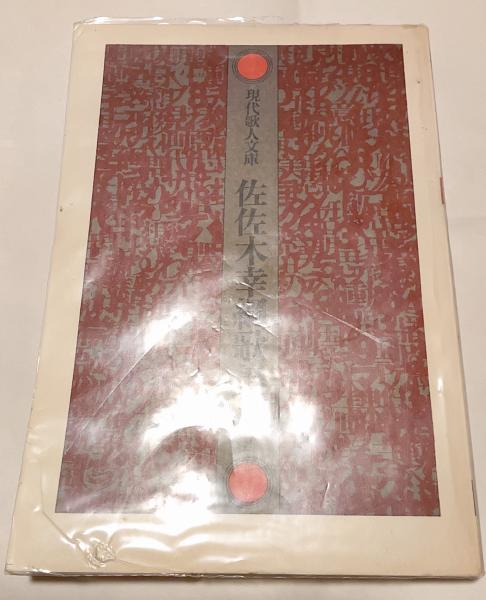 現代歌人文庫
佐佐木幸綱歌